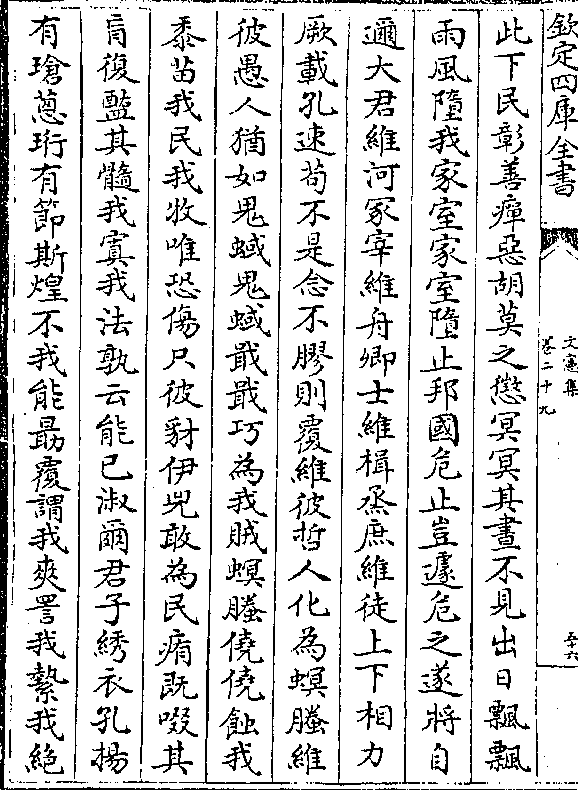 欽定四庫全書
文憲集
卷二十九
此下民彰善癉惡胡莫之懲冥冥其晝不見出日飄飄
雨風墮我家室家室墮止邦國危止豈遽危之遂將自
邇大君維河冢宰維舟卿士維楫烝庶維徒上下相力
厥載孔速苟不是念不膠則覆維彼哲人化為螟螣維
彼愚人猶如鬼蜮鬼蜮戢戢巧為我賊螟螣僥僥蝕我
黍苗我民我牧唯恐傷只彼豺伊兕敢為民痏既啜其
肓復盬其髓我寘我法孰云能已淑爾君子綉衣孔揚
有瑲蔥珩有節斯煌不我能勗覆謂我爽詈我縶我絕